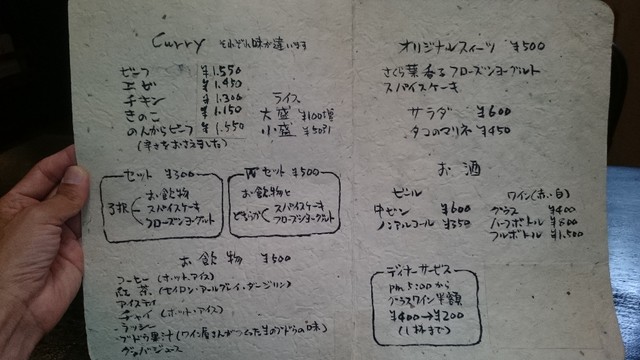 Curry それぞれ味が違います
ビーフ ¥1,550
エビ ¥1,450
チキン ¥1,300
きのこ ¥1,150
のんからビーフ ¥1,550
(辛さをおさえました)
ライス
大盛 ¥100増
小盛 ¥50引
セット ¥300
3択
お飲物
スパイスケーキ
フローズンヨーグルト
Wセット ¥500
お飲物と
どちらか
スパイスケーキ
フローズンヨーグルト
お飲物 ¥500
コーヒー(ホット、アイス)
紅茶(セイロン・アールグレイ・ダージリン)
アイスティ
チャイ(ホット・アイス)
ラッシー
ブドウ果汁(ワイン屋さんがつくった生のブドウの味)
グァバジュース
オリジナルスィーツ ¥500
さくら葉香るフローズンヨーグルト
スパイスケーキ
サラダ ¥600
タコのマリネ ¥450
お酒
ビール
中ビン ¥600
ノンアルコール ¥350
ワイン(赤、白)
グラス ¥400
ハーフボトル ¥800
フルボトル ¥1,500
ディナーサービス
pm 5:00から
グラスワイン半額
¥400→¥200
(1杯まで)